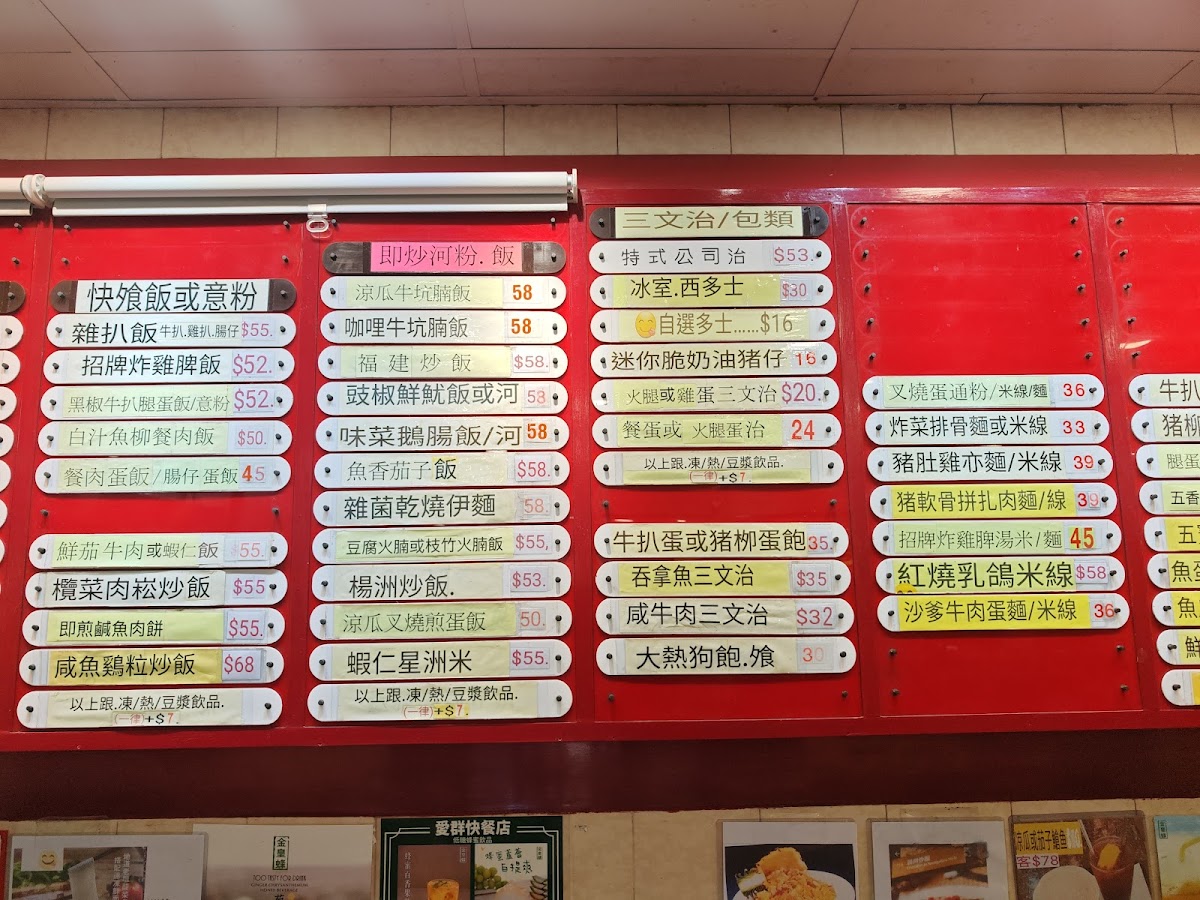 快飱飯或意粉
雜扒飯 牛扒.雞扒.腸仔 $55.
招牌炸雞脾飯 $52.
黑椒牛扒腿蛋飯/意粉 $52.
白汁魚柳餐肉飯 $50.
餐肉蛋飯/腸仔蛋飯 45
鮮茄牛肉或蝦仁飯 55.
欖菜肉崧炒飯 $55
即煎鹹魚肉餅 $55.
咸魚鷄粒炒飯 $68
以上跟.凍/熱/豆漿飲品.
(一律)+$7.
即炒河粉.飯
涼瓜牛坑腩飯 58
咖哩牛坑腩飯 58
福建炒飯 $58.
豉椒鮮魷飯或河 58
味菜鵝腸飯/河 58
魚香茄子飯 $58.
雜菌乾燒伊麵 58.
豆腐火腩或枝竹火腩飯 $55,
楊洲炒飯. $53.
涼瓜叉燒煎蛋飯 50.
蝦仁星洲米 $55.
以上跟.凍/熱/豆漿飲品.
(一律)+$7.
三文治/包類
特式公司治 $53.
冰室.西多士 $30
自選多士......$16
迷你脆奶油猪仔 16
火腿或雞蛋三文治 $20.
餐蛋或 火腿蛋治 24
以上跟.凍/熱/豆漿飲品.
(一律)+$7.
牛扒蛋或猪栁蛋飽 35.
吞拿魚三文治 $35
咸牛肉三文治 $32
大熱狗飽.飱 30
叉燒蛋通粉/米線/麵 36
炸菜排骨麵或米線 33
豬肚雞亦麵/米線 39
猪軟骨拼扎肉麵/線 39
招牌炸雞脾湯米/麵 45
紅燒乳鴿米線 $58
沙爹牛肉蛋麵/米線 36
牛扒
猪柳
腿蛋
五香
五
魚蛋
魚
鮮
金皇蜂
TOO TASTY FOR DRINK
愛群快餐店
低糖蜂蜜飲品
涼瓜或茄子鯩魚
客$78